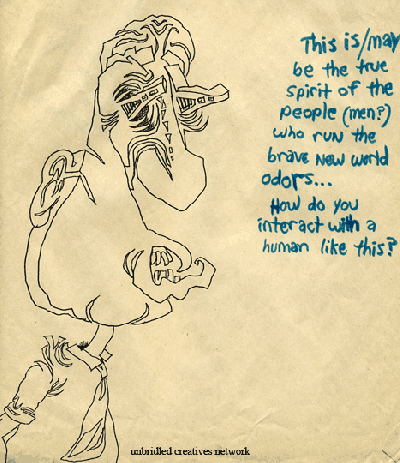 This is/may
be the true
spirit of the
people (men?)
who run the
brave New world
odors...
How do you
interact with a
human like this?
unbridled creatives network